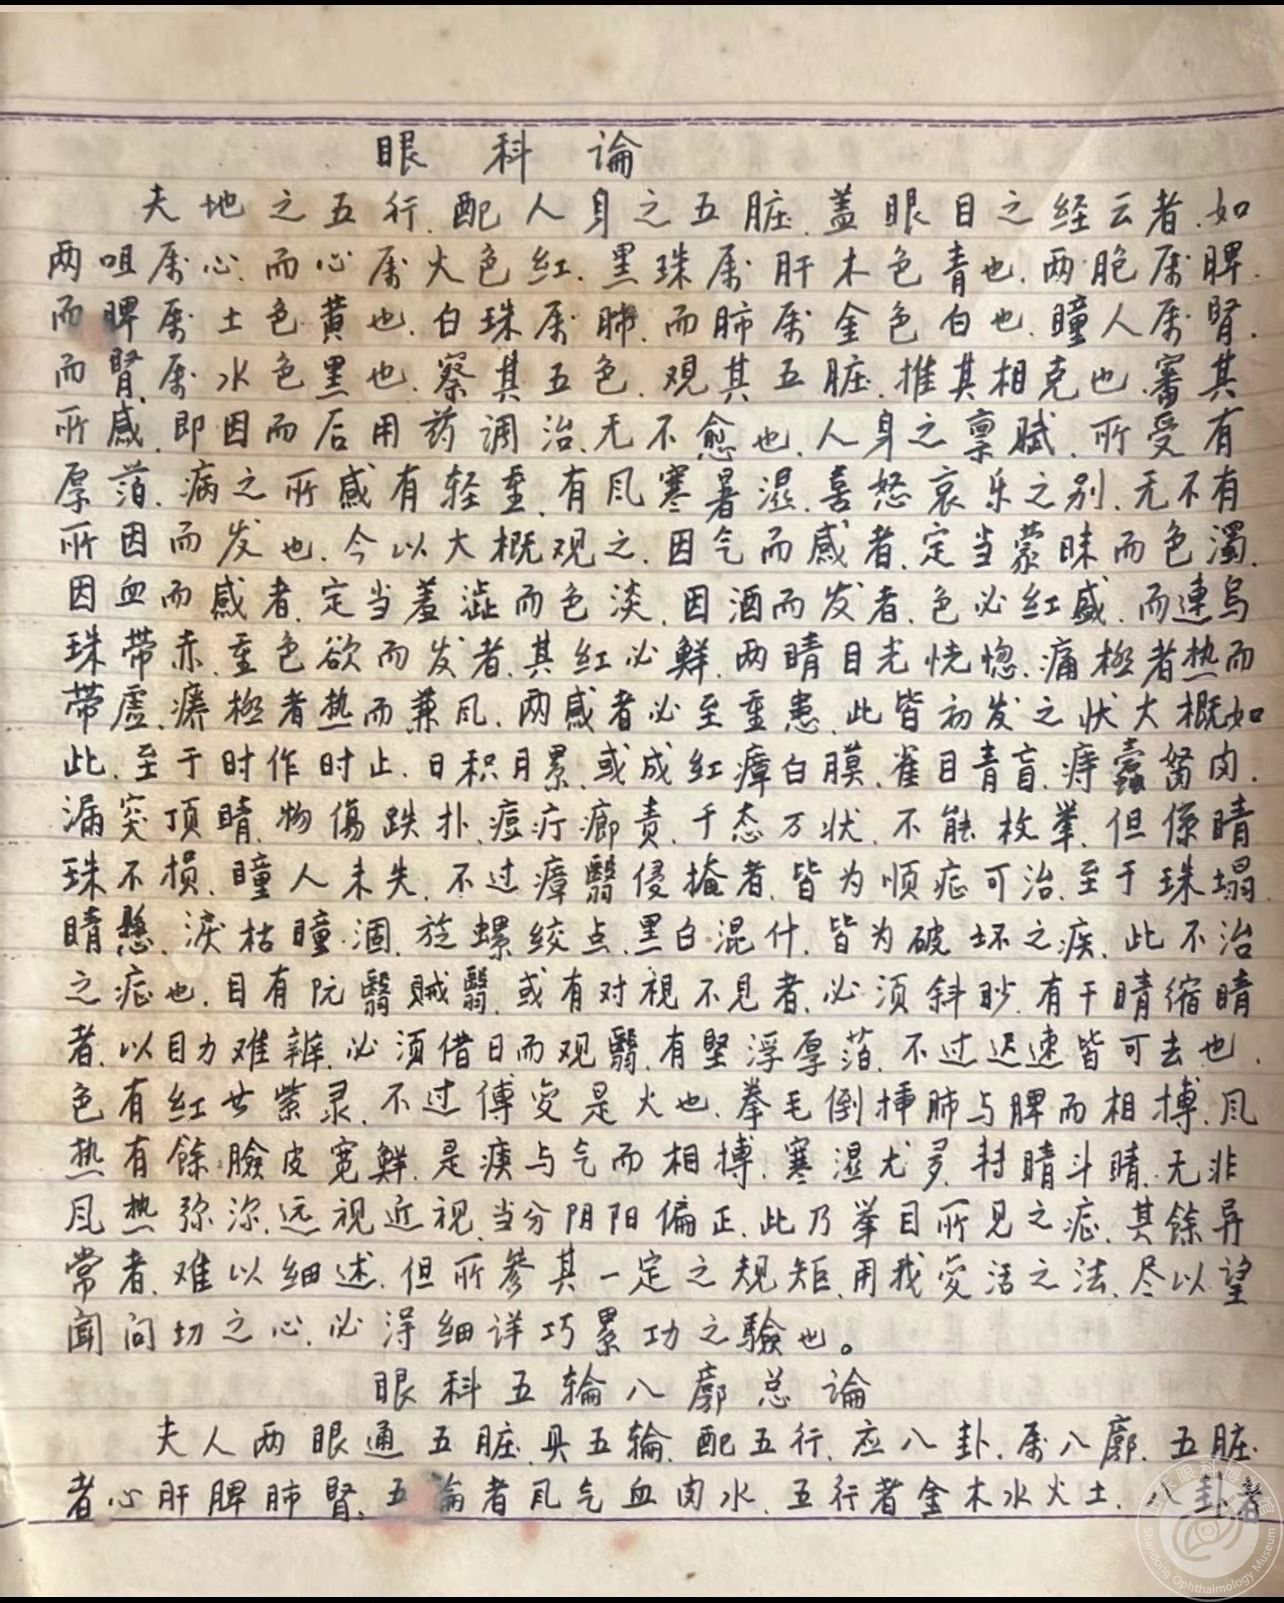 眼科论
夫地之五行.配人身之五脏.盖眼目之经云者.如
两咀属心.而心属火色红.黑珠属肝木色青也.两胞属脾.
而脾属土色黄也.白珠属肺.而肺属金色白也.瞳人属腎.
而腎属水色黑也.察其五色.观其五脏.推其相克也.審其
所感.即因而后用药调治.无不愈也.人身之禀赋.所受有
厚萡.病之所感有轻重.有风寒暑濕.喜怒哀乐之别.无不有
所因而发也.今以大概观之.因气而感者.定当蒙昧而色濁.
因血而感者.定当羞澁而色淡.因酒而发者.色必红盛.而連乌
珠带赤.重色欲而发者.其红必鲜.两睛目光恍惚.痛極者热而
带虚.癢極者热而兼风.两感者必至重患.此皆初发之状大概如
此.至于时作时止.日积月累.或成红瘴白膜.雀目青盲.痔蠹努肉.
漏突顶睛.物傷跌扑.痘疔瘌责.千态万状.不能枚举.但係睛
珠不损.瞳人未失.不过瘴翳侵掩者.皆为顺症可治.至于珠塌
睛懸.淚枯瞳涸.旋螺绞点.黑白混什.皆为破坏之疾.此不治
之症也.目有阮翳贼翳.或有对視不見者.必须斜眇.有干睛缩睛
者.以目力难辨.必须借日而观翳.有堅浮厚萡.不过迟速皆可去也.
色有红甘紫录.不过傅变是火也.拳毛倒插肺与脾而相搏.风
热有餘.臉皮宽鲜.是痰与气而相搏.寒湿尤多.轉睛斗睛.无非
风热弥深.远视近视.当分阴阳偏正.此乃举目所见之症.其餘异
常者.难以细述.但所參其一定之规矩.用我变活之法.尽以望
闻问切之心.必得细详巧累功之驗也。
眼科五輪八廓总論
夫人两眼通五脏.具五輪.配五行.应八卦.属八廓.五脏
者心肝脾肺腎.五輪者风气血肉水.五行者金木水火土.八卦者
Shandong Ophthalmology Museum